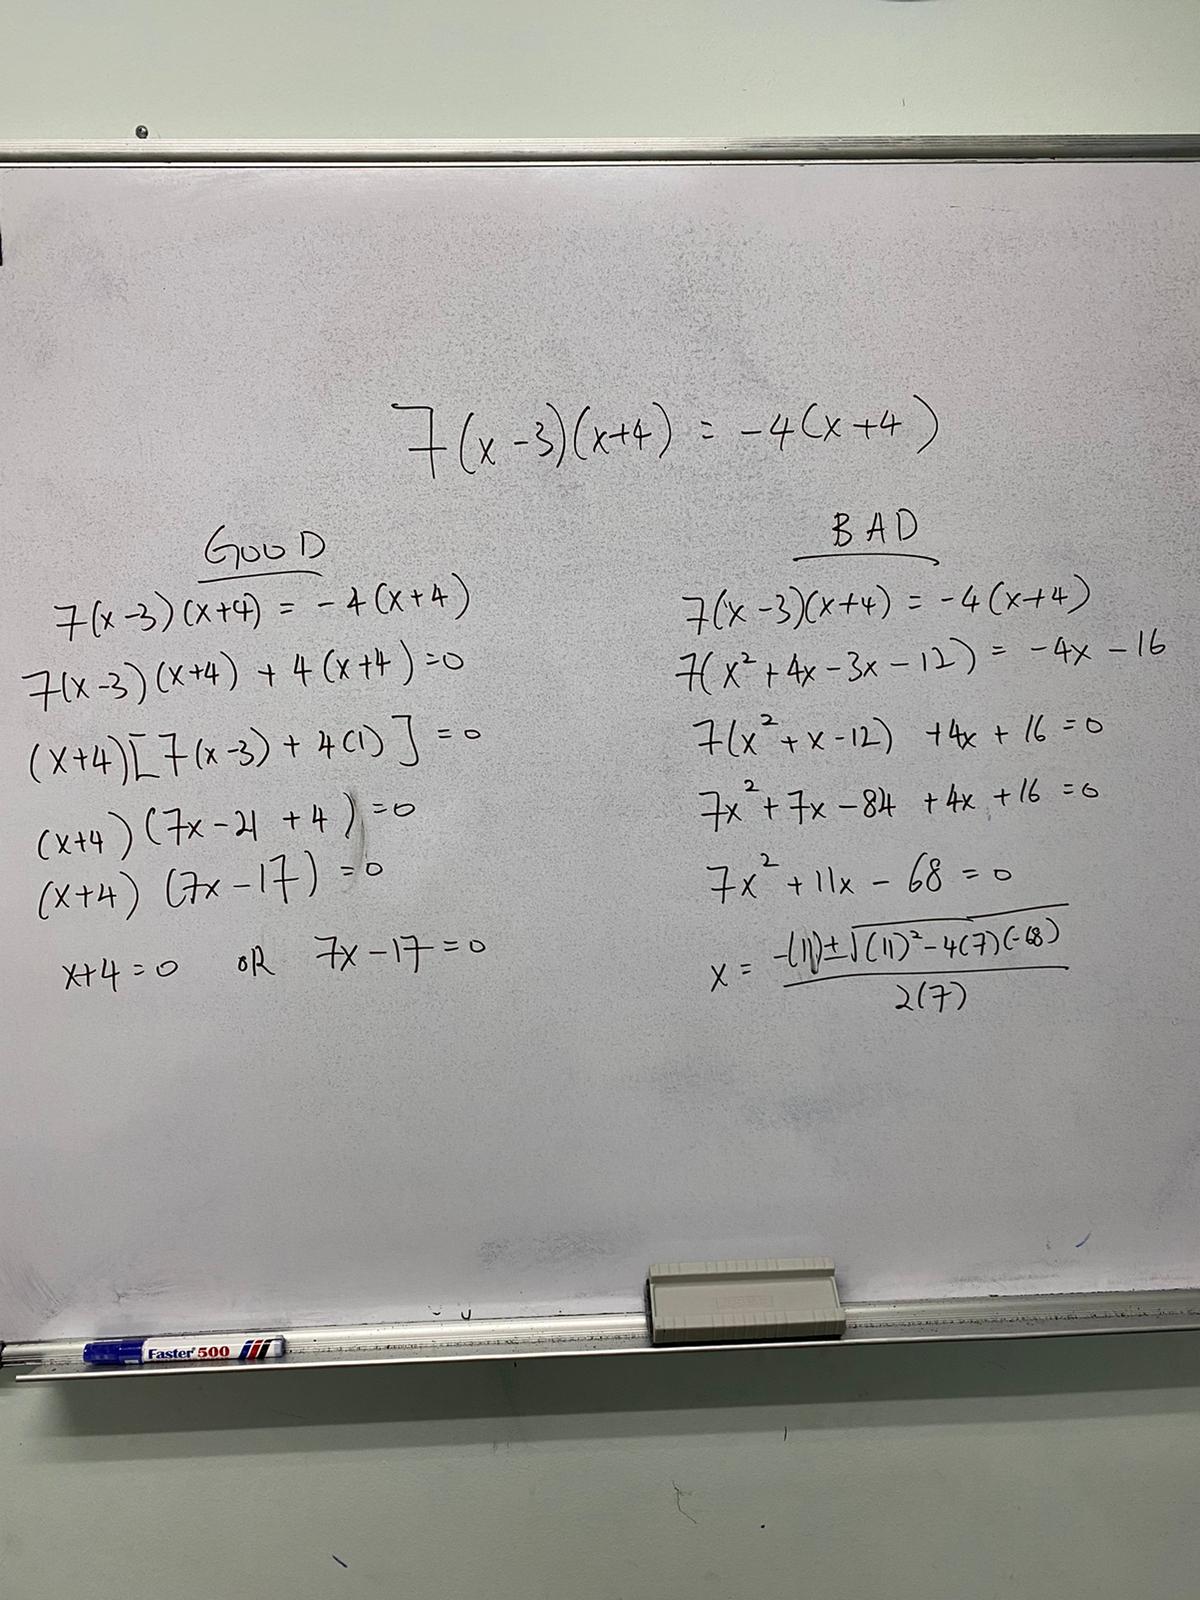 7(x-3)(x+4) = -4(x+4)
GOOD
7(x-3)(x+4) = -4(x+4)
7(x-3)(x+4) + 4(x+4) = 0
(x+4)[7(x-3) + 4(1)] = 0
(x+4)(7x-21+4) = 0
(x+4)(7x-17) = 0
x+4=0 OR 7x-17=0
BAD
7(x-3)(x+4) = -4(x+4)
7(x²+4x-3x-12) = -4x-16
7(x²+x-12) +4x+16=0
7x²+7x-84+4x+16=0
7x²+11x-68=0
x = (-(11)±√((11)²-4(7)(-68)))/(2(7))
Faster 500